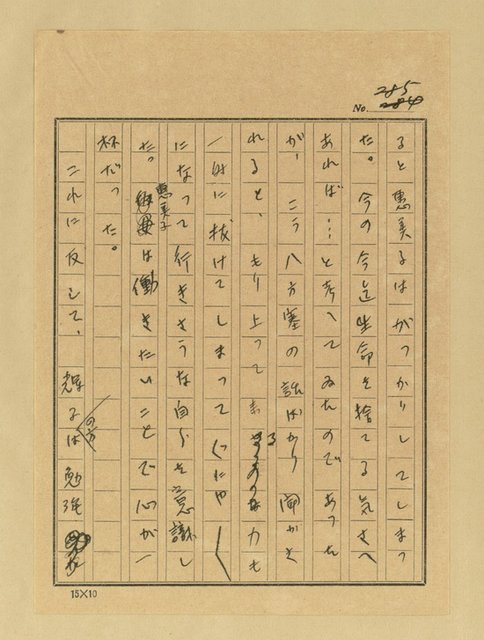 No. 285
ると惠美子はがつかりしてしまつ
た。今の今迄生命を捨てる気さへ
あれば…と考へてゐたのであつた
が、こう八方塞の話ばかり聞かさ
れると、もり上つて来る力も
一時に抜けてしまつてぐにや〱
になつて行きさうな自分を意識し
た。惠美子は働きたいことで心が一
杯だつた。
これに反して、輝子の方は勉強
15×10